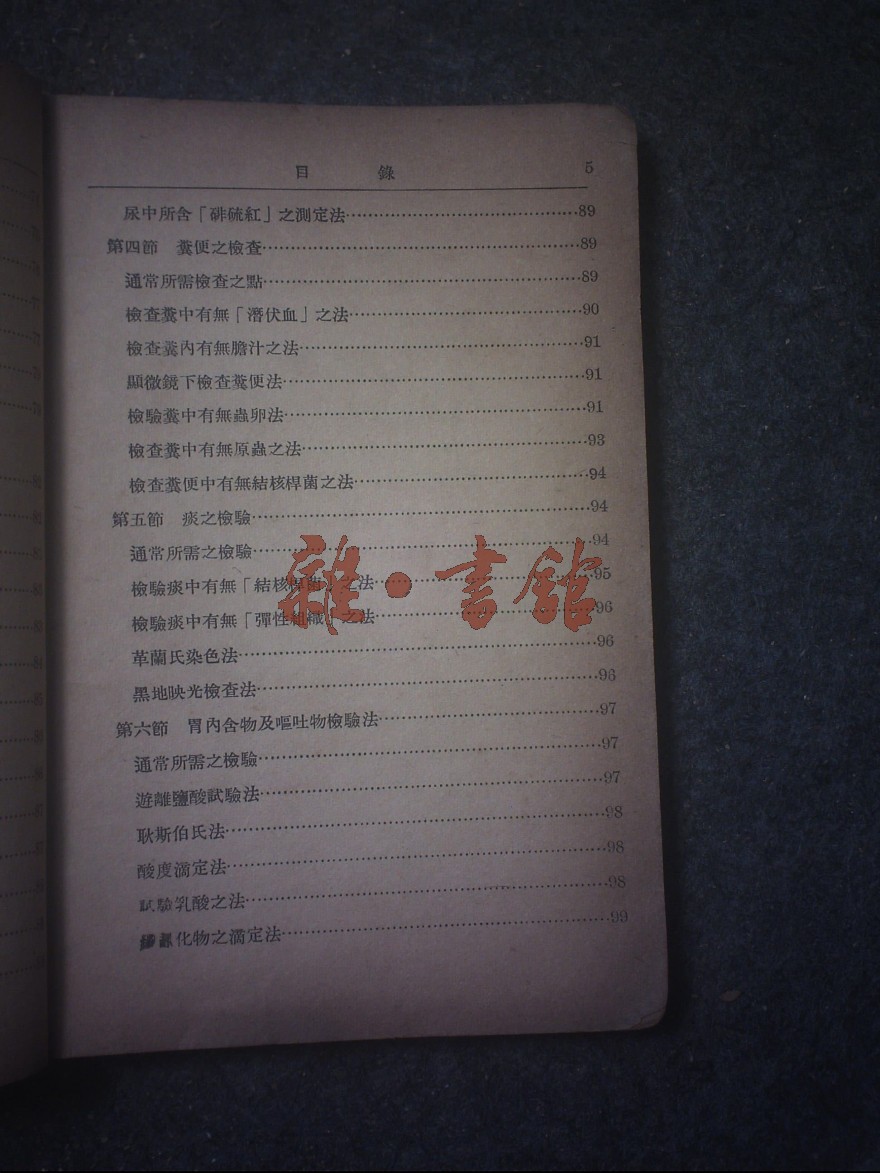 目 錄 5
尿中所含「硑硫紅」之測定法 89
第四節 糞便之檢查 89
通常所需檢查之點 89
檢查糞中有無「潛伏血」之法 90
檢查糞內有無膽汁之法 91
顯微鏡下檢查糞便法 91
檢驗糞中有無蟲卵法 91
檢查糞中有無原蟲之法 93
檢查糞便中有無結核桿菌之法 94
第五節 痰之檢驗 94
通常所需之檢驗 94
檢驗痰中有無「結核桿菌」之法 95
檢驗痰中有無「彈性組織」之法 96
革蘭氏染色法 96
黑地映光檢查法 96
第六節 胃內含物及嘔吐物檢驗法 97
通常所需之檢驗 97
遊離鹽酸試驗法 97
耿斯伯氏法 98
酸度滴定法 98
試驗乳酸之法 98
化物之滴定法 99
雜·書館